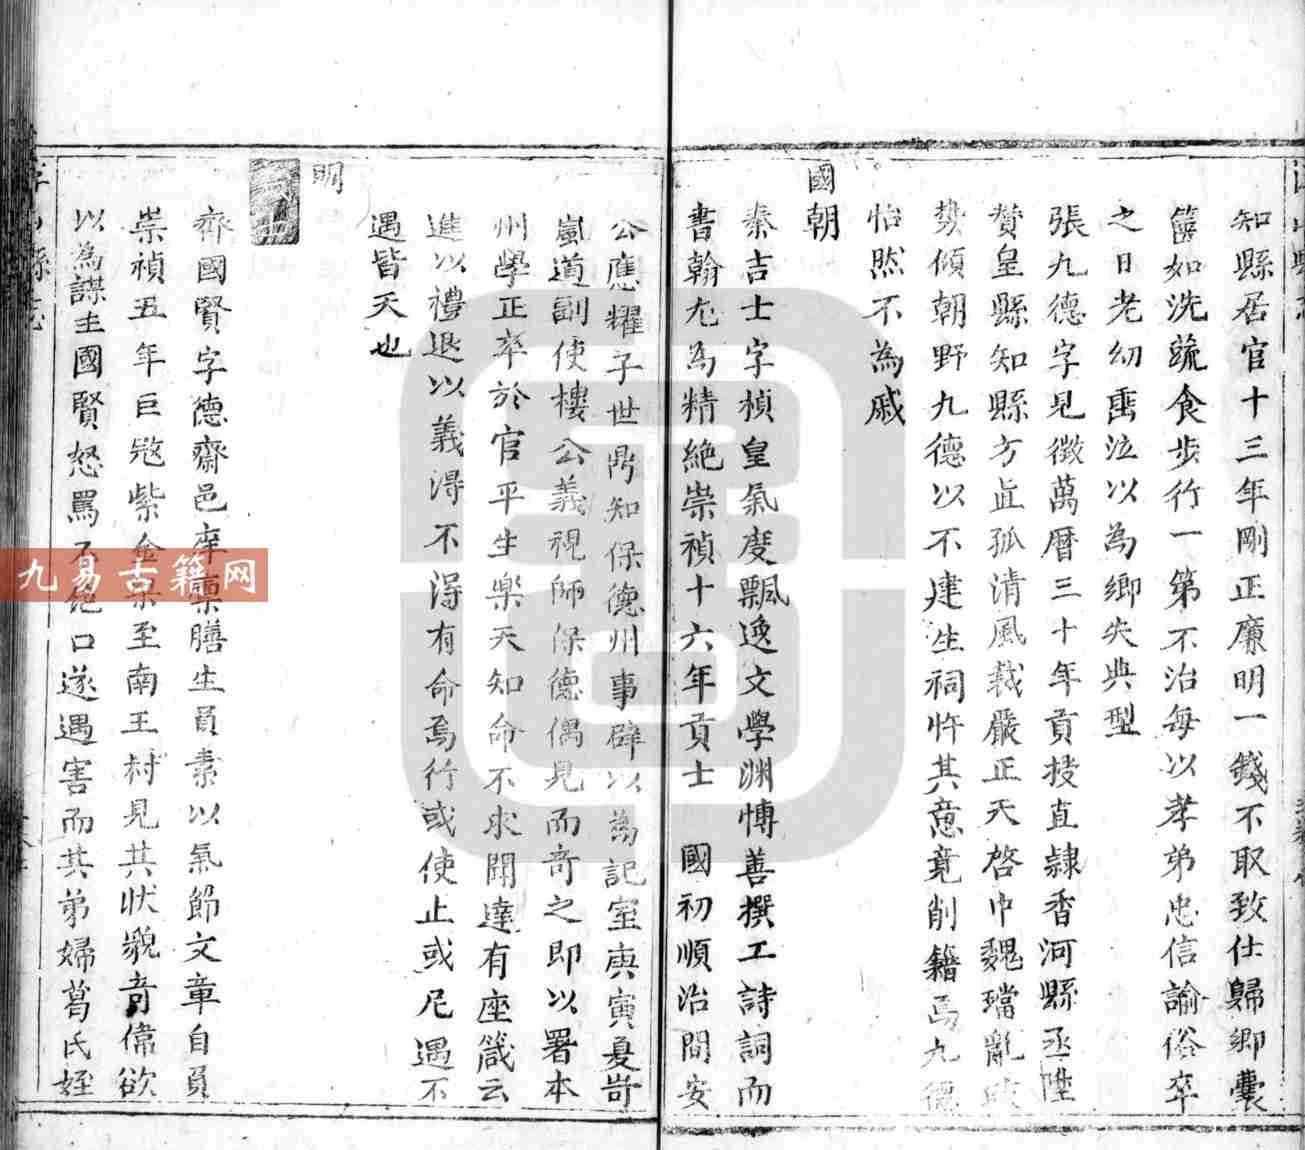 知縣居官十三年剛正廉明一錢不取致仕歸鄉囊
篋如洗蔬食步行一第不治每以孝弟忠信諭俗卒
之日老幼垂泣以為鄉失典型
張九德字見徵萬曆三十年貢授直隸香河縣丞陞
贊皇縣知縣方直孤清風裁嚴正天啓中魏璫亂政
勢傾朝野九德以不建生祠忤其意竟削籍焉九德
怡然不為戚
國朝
秦吉士字楨皇氣度飄逸文學淵博善撰工詩詞而
書翰尤為精絶崇禎十六年貢士 國初順治間安
公應耀子世鼎知保德州事辟以為記室庚寅夏岢
嵐道副使樓公義視師保德偶見而奇之即以署本
州學正卒於官平生樂天知命不求聞達有座箴云
進以禮退以義得不得有命焉行或使止或尼遇不
遇皆天也
明
齊國賢字德齋邑庠廩膳生員素以氣節文章自負
崇禎五年巨寇紫金梁至南王村見其狀貌奇偉欲
以為謀主國賢怒罵不絕口遂遇害而其弟婦葛氏姪
九易古籍网